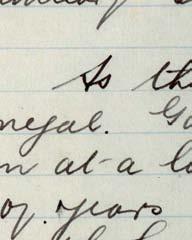 As th
negal. Go
n at a lo
of years